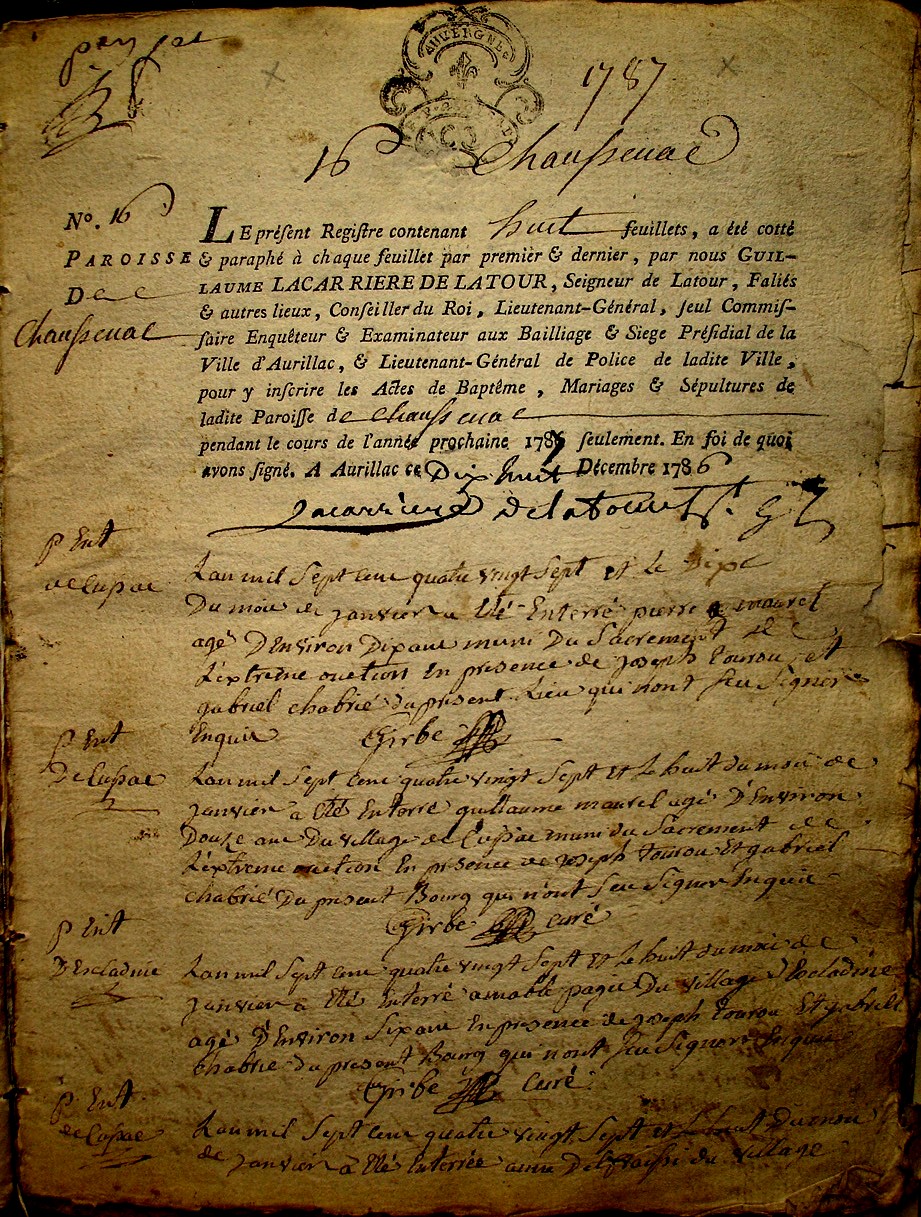 AUVERGNE
1787
16 Chaussenac
N°. 16
PAROISSE
De
Chaussenac
LE présent Registre contenant huit feuillets, a été cotté
& paraphé à chaque feuillet par premier & dernier, par nous GUIL-
LAUME LACARRIERE DE LATOUR, Seigneur de Latour, Faliés
& autres lieux, Conseiller du Roi, Lieutenant-Général, seul Commis-
saire Enquêteur & Examinateur aux Bailliage & Siege Présidial de la
Ville d'Aurillac, & Lieutenant-Général de Police de ladite Ville,
pour y inscrire les Actes de Baptême, Mariages & Sépultures de
ladite Paroisse de chaussenac
pendant le cours de l'année prochaine 1787 seulement. En foi de quoi
avons signé. A Aurillac ce Dix huit Décembre 1786
Lacarriere Delatour
p Ent
de Cussac
L'an mil sept cent quatre vingt sept et le
du mois de janvier a été Enterré pierre maurel
agé D'Environ Dix ans muni Du Sacrement de
L'extreme onction En presence de Joseph tourou et
gabriel chabrié du present Lieu qui n'ont seu signer
Enquis Girbe
p Ent
De Cussac
L'an mil sept cent quatre vingt sept et le huit du mois de
janvier a été Enterré guillaume maurel agé D'Environ
Douze ans Du village de Cussac muni du Sacrement de
L'extreme onction En presence de Joseph tourou Et gabriel
chabrié Du present Bourg qui n'ont seu signer Enquis
Girbe curé
p Ent
D'Escladine
L'an mil sept cent quatre vingt sept et le huit du mois de
janvier a été Enterré amable pagis Du village D'Escladine
agé D'Environ Six ans En presence de Joseph tourou Et gabriel
chabrié du present Bourg qui n'ont seu signer Enquis
Girbe Curé
p Ent
de Cussac
L'an mil sept cent quatre vingt sept et le huit Du mois
de janvier a été Enterrée anne du village